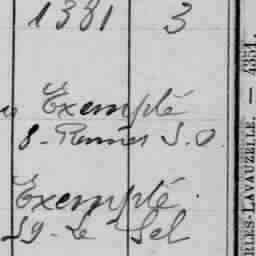 1381 3
Exempté
8 - Rennes S. O.
Exempté.
59 - Le Sel
RLES-LAVAUZELLE. — 4351.